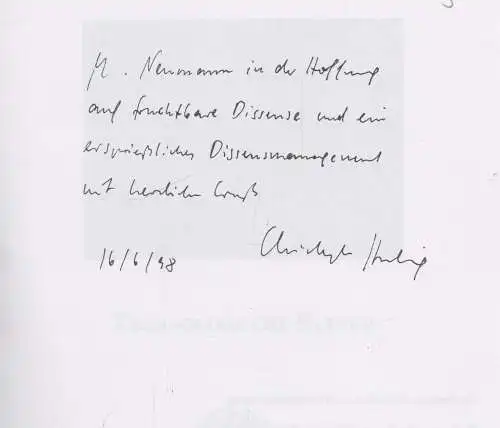 H. Neumann in der Hoffnung
auf fruchtbare Dissense und ein
ersprießliches Dissensmanagement
mit herzlichem Gruß
Christoph Hubig
16/6/98